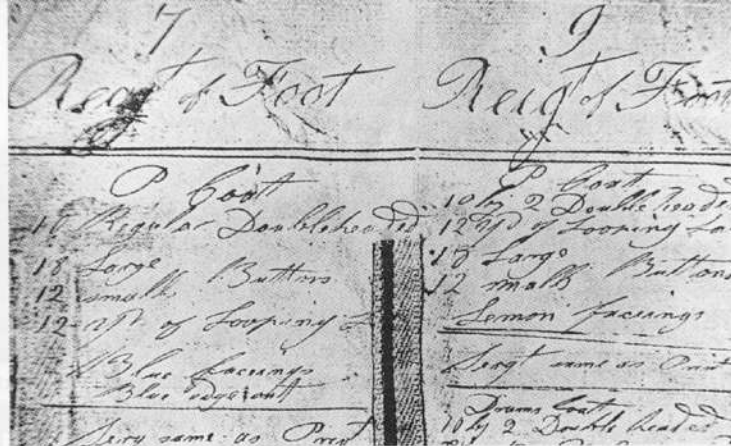 7
Regt of Foot
P Coat
Regular Doubleheaded
18 Large
12 small Buttons
12 yd of Looping
Blue facings
Blue edge
Serg same as Privt
9
Reigt of Foot
P Coat
10 by 2 Double heade
12 yd of Looping La
18 Large
12 small Buttons
Lemon facings
Sergt same as Privt
Drums Coat
10 by 2 Double headed